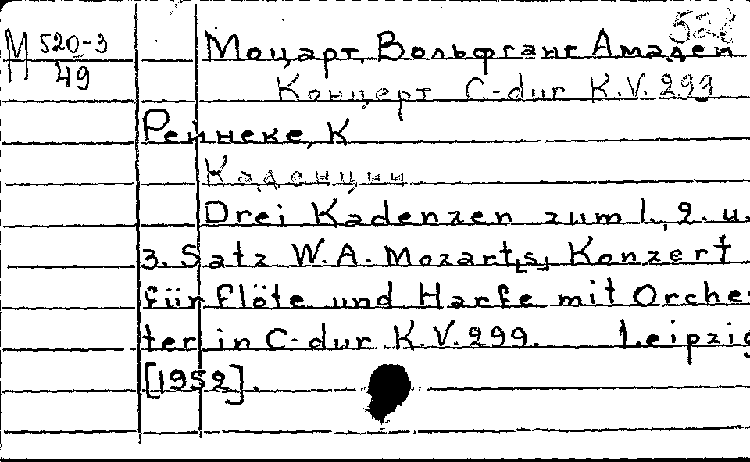 528
М 520-3 Моцарт, Вольфганг Амадей
49
Концерт C-dur K.V. 299
Рейнеке, К
Каденции
Drei Kadenzen zum 1., 2. u.
3. Satz W. A. Mozart,s, Konzert
für Flöte und Harfe mit Orche
ter in C-dur K.V. 299. Leipzig
[1952].